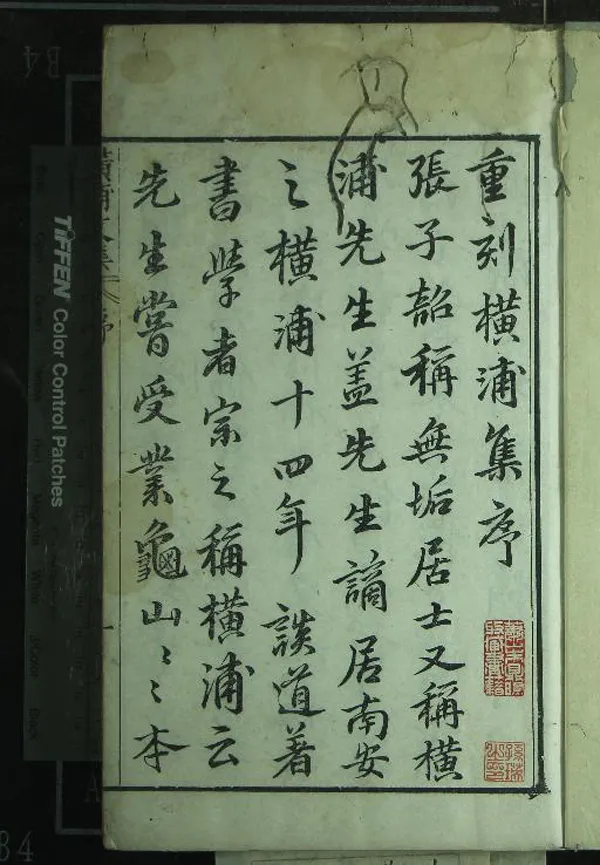 重刻橫浦集序
張子韶稱無垢居士又稱橫
浦先生蓋先生謫居南安
之橫浦十四年談道著
書學者宗之稱橫浦云
先生嘗受業龜山〻本
TIFFEN Color Control Patches
B4
B4